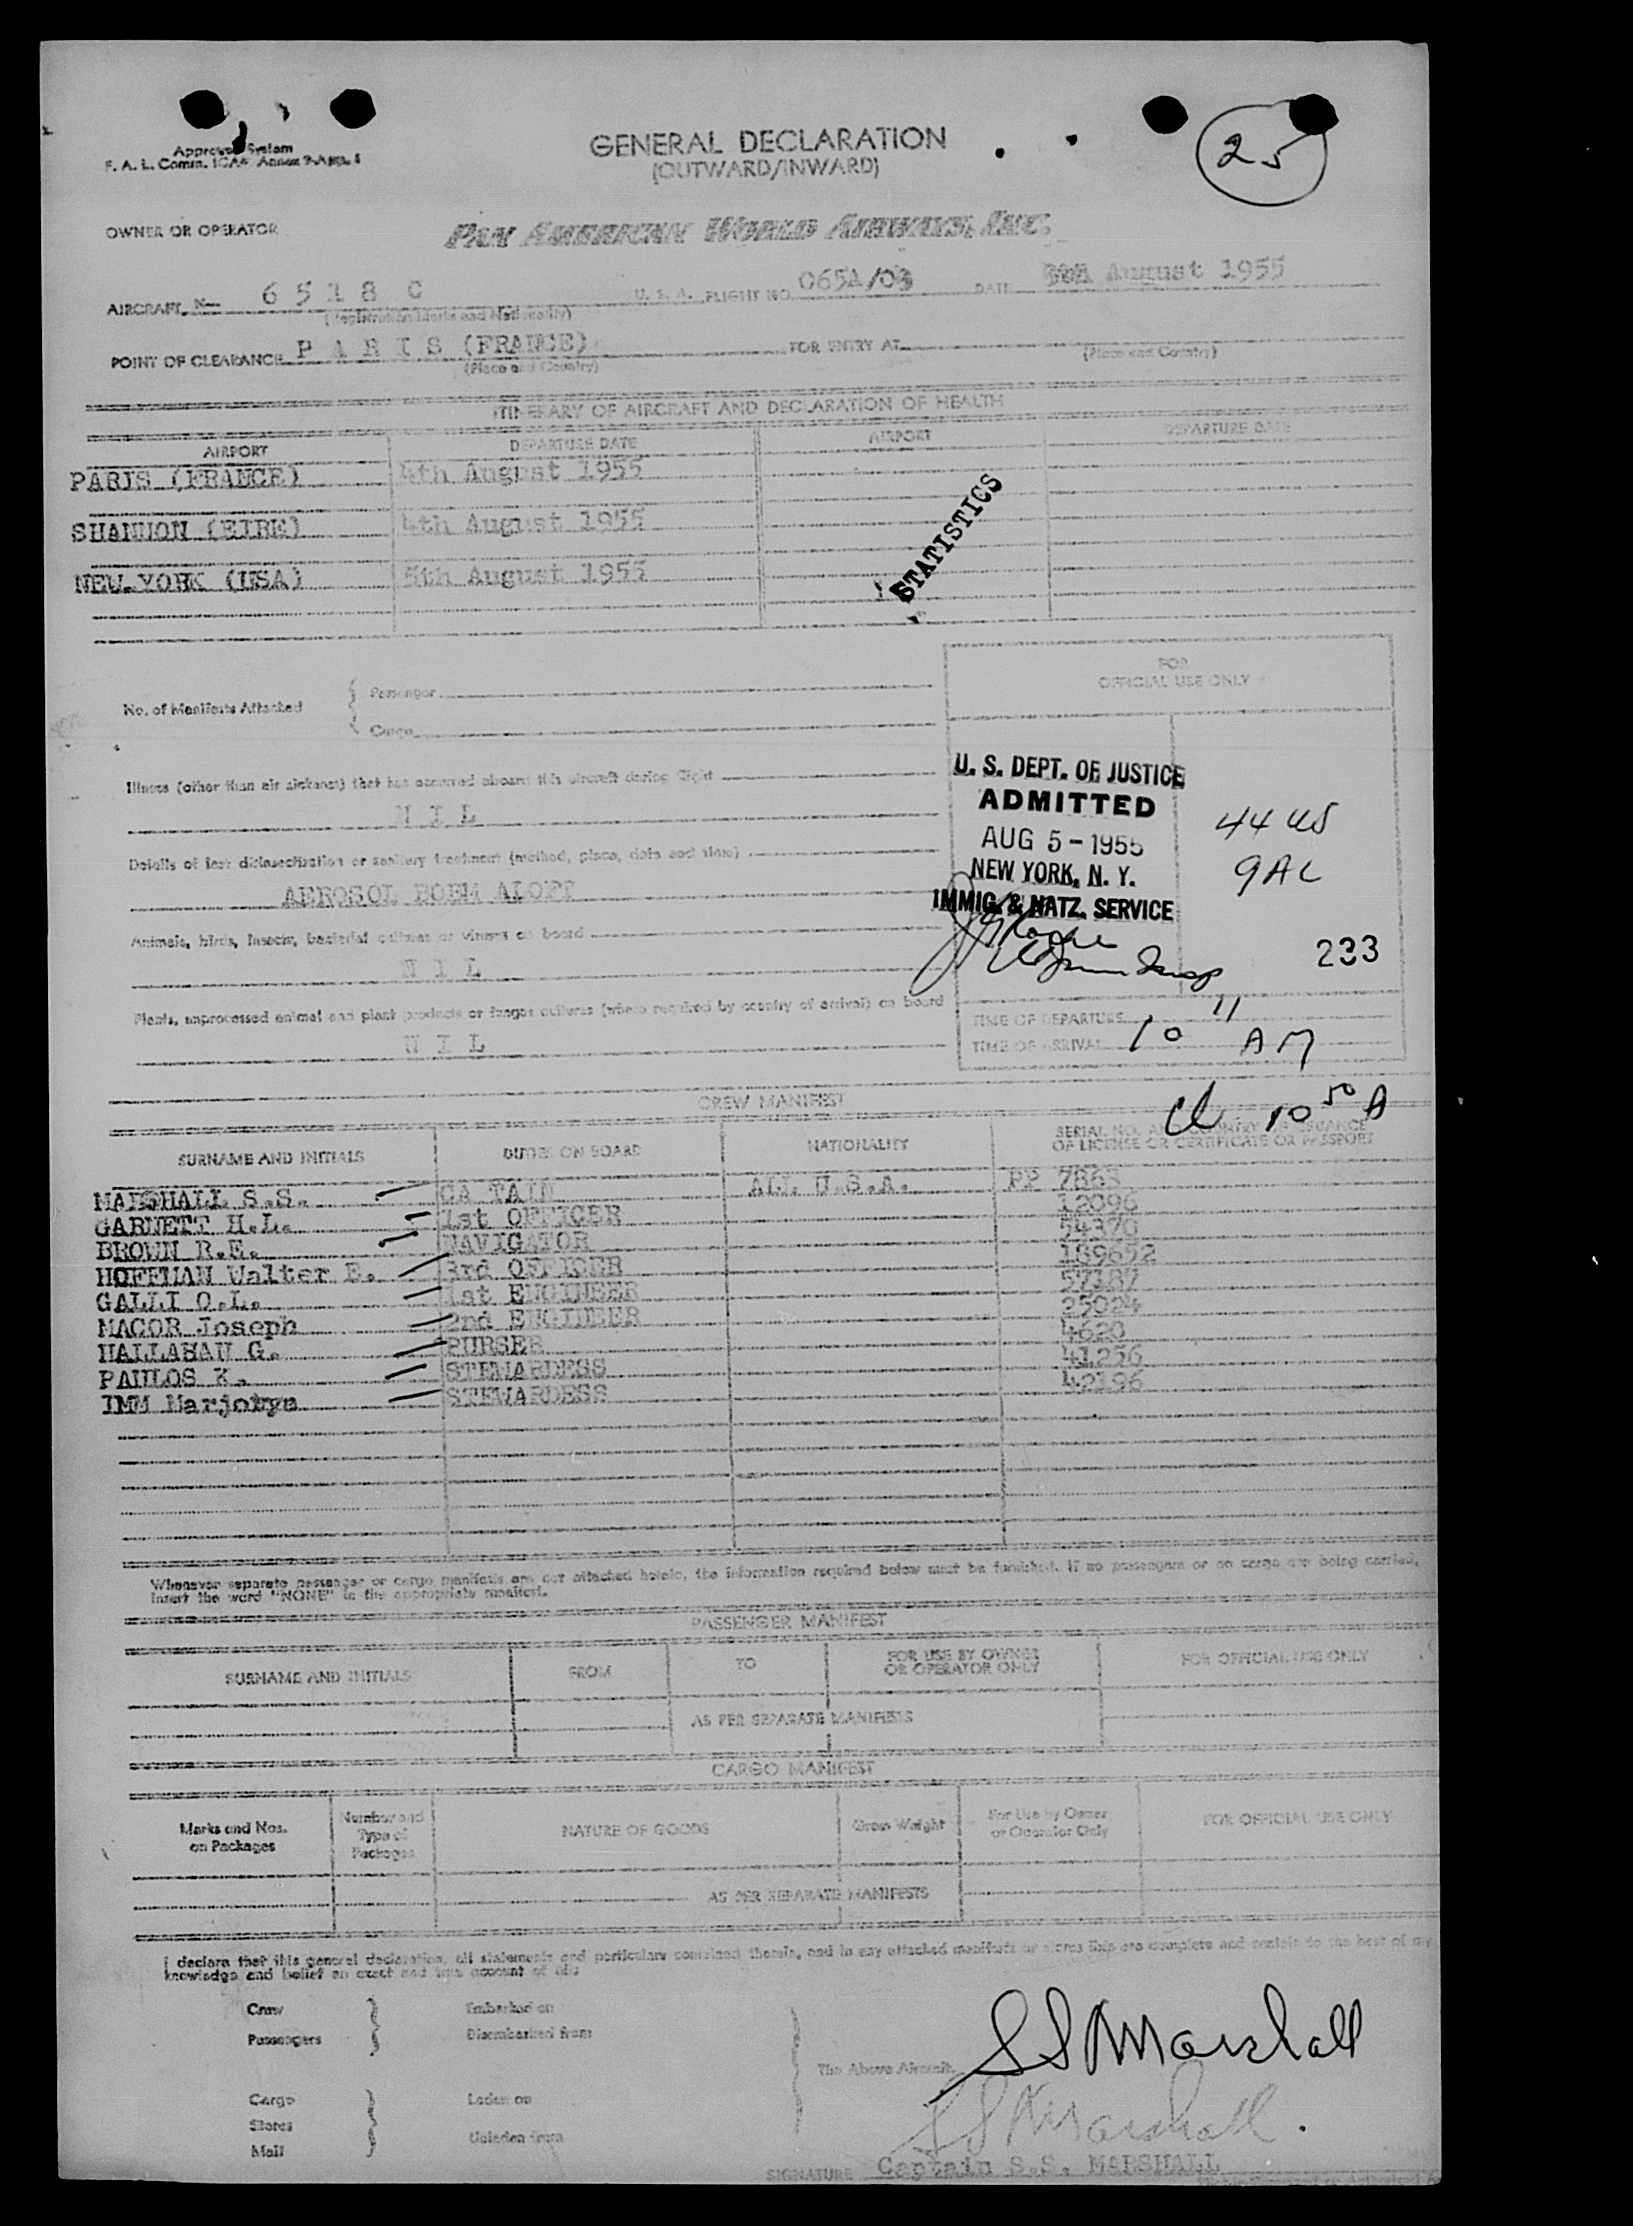 25
Approved System
F. A. L. Comm. ICAO Annex 9-App. 1
GENERAL DECLARATION
(OUTWARD/INWARD)
OWNER OR OPERATOR PAN AMERICAN WORLD AIRWAYS, INC.
AIRCRAFT N 6518 C U. S. A. FLIGHT NO. 065A/03 DATE August 1955
(Registration Marks and Nationality)
POINT OF CLEARANCE P A R I S (FRANCE) FOR ENTRY AT
(Place and Country) (Place and Country)
ITINERARY OF AIRCRAFT AND DECLARATION OF HEALTH
AIRPORT DEPARTURE DATE AIRPORT DEPARTURE DATE
PARIS (FRANCE) 4th August 1955
SHANNON (EIRE) 4th August 1955
NEW YORK (USA) 5th August 1955
STATISTICS
FOR
OFFICIAL USE ONLY
No. of Manifests Attached { Passenger
Cargo
Illness (other than air sickness) that has occurred aboard this aircraft during flight
N I L
Details of last disinsectization or sanitary treatment (method, place, date and time)
AEROSOL BOEM ALOFT
Animals, birds, insects, bacterial cultures or viruses on board
N I L
Plants, unprocessed animal and plant products or fungus cultures (where required by country of arrival) on board
N I L
U. S. DEPT. OF JUSTICE
ADMITTED
AUG 5 - 1955
NEW YORK, N. Y.
IMMIG. & NATZ. SERVICE
44 US
9 AL
233
TIME OF DEPARTURE
TIME OF ARRIVAL 10 11 AM
10 50 A
CREW MANIFEST
SURNAME AND INITIALS DUTIES ON BOARD NATIONALITY SERIAL NO. AND COUNTRY OF ISSUANCE
OF LICENSE OR CERTIFICATE OR PASSPORT
MARSHALL S.S. CA TAIN ALL U.S.A. PP 7863
GARNETT H.L. 1st OFFICER 12096
BROWN R.E. NAVIGATOR 54370
HOFFMAN Walter E. 3rd OFFICER 189652
GALLI O.L. 1st ENGINEER 57187
MACOR Joseph 2nd ENGINEER 25024
HALLAHAN G. PURSER 4620
PAULOS K. STEWARDESS 41256
IMM STEWARDESS 42196
Whenever separate passenger or cargo manifests are not attached hereto, the information required below must be furnished. If no passengers or no cargo are being carried,
insert the word "NONE" in the appropriate manifest.
PASSENGER MANIFEST
SURNAME AND INITIALS FROM TO FOR USE BY OWNER
OR OPERATOR ONLY FOR OFFICIAL USE ONLY
AS PER SEPARATE MANIFESTS
CARGO MANIFEST
Marks and Nos.
on Packages
Number and
Type of
Packages
NATURE OF GOODS
Gross Weight
For Use by Owner
or Operator Only
FOR OFFICIAL USE ONLY
AS PER SEPARATE MANIFESTS
I declare that this general declaration, all statements and particulars contained therein, and in any attached manifests or stores lists are complete and contain to the best of my
knowledge and belief an exact and true account of all:
Crew } Embarked on
Passengers Disembarked from
The Above Aircraft
Cargo Laden on
Stores
Mail Unladen from
S S Marshall
S S Marshall.
SIGNATURE Captain S.S. MARSHALL